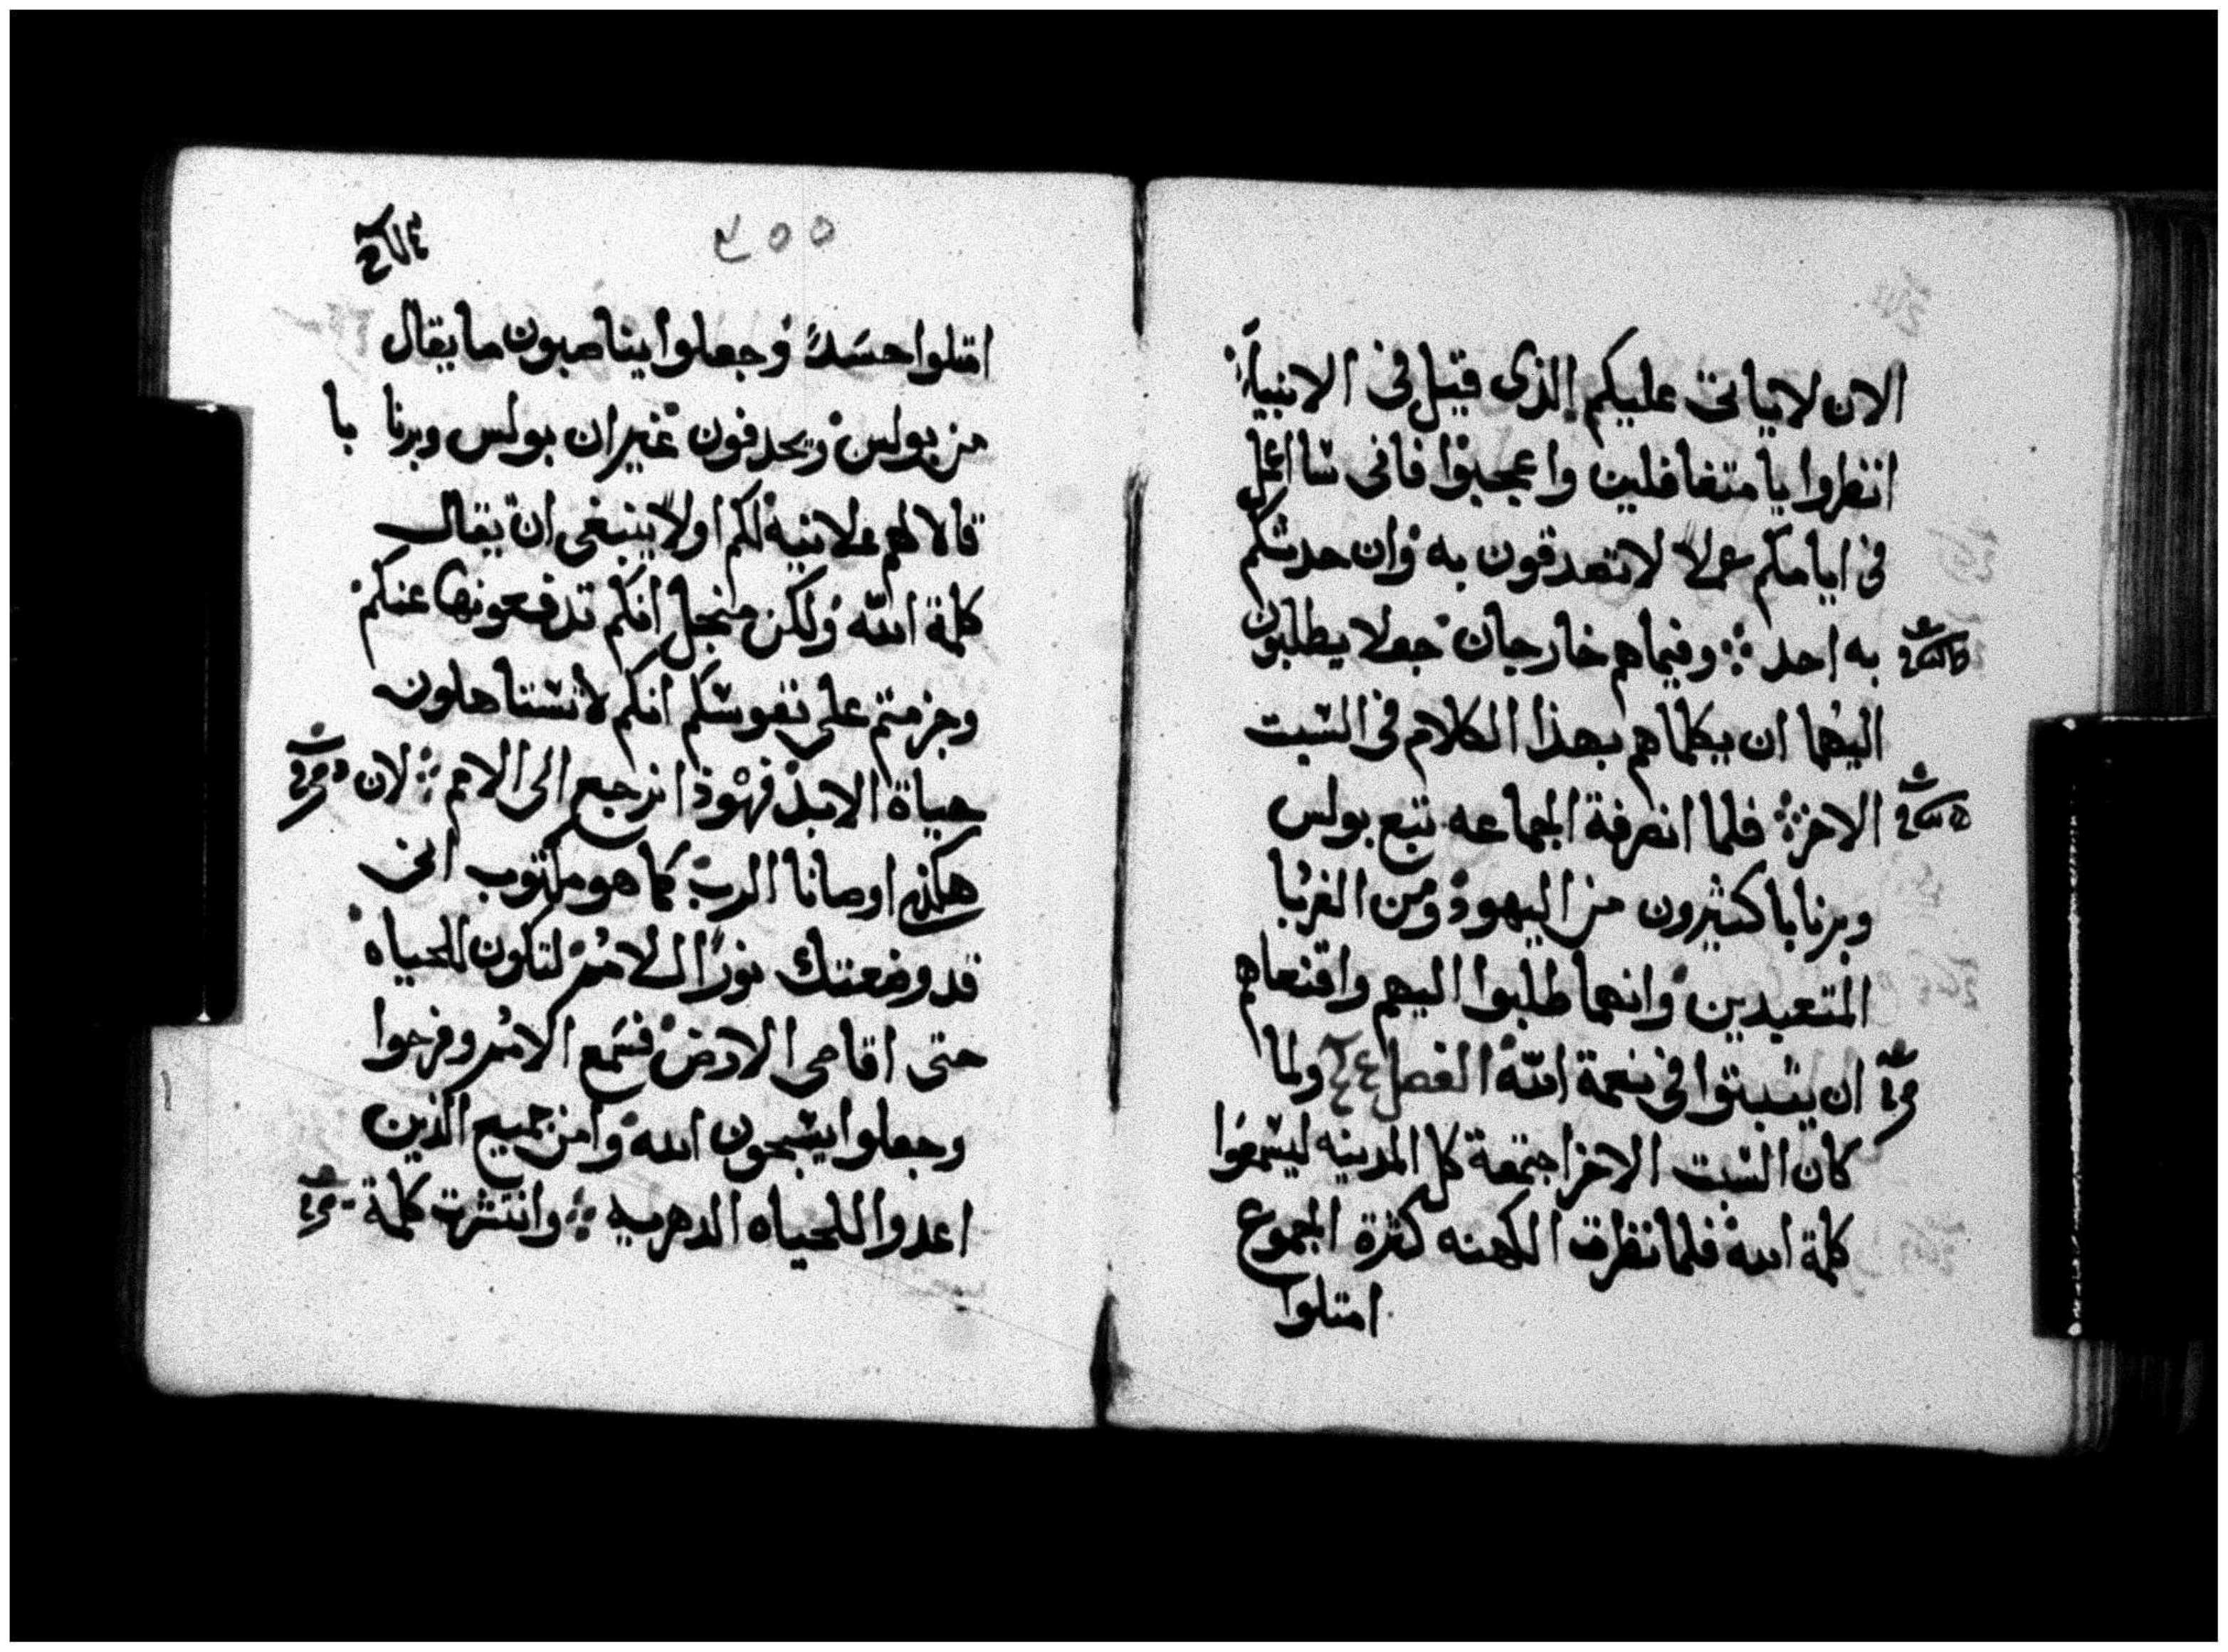 الان لا ياتى عليكم الذى قيل فى الانبياء
انظروا يا متغافلين واعجبوا فانى ساعمل
فى ايامكم عملا لا تصدقون به وان حدثكم
به احد ⁘ وفيما هم خارجان جعلا يطلبون
اليهما ان يكلماهم بهذا الكلام فى السبت
الاخر ⁘ فلما انصرفة الجماعه تبع بولس
وبرنابا كثيرون من اليهود ومن الغربا
المتعبدين وانهما طلبوا اليهم واقنعاهم
ان يثبتوا فى نعمة الله الفصل ولما
كان السبت الاخر اجتمعة كل المدينه ليسمعوا
كلمة الله فلما نظرت الكهنه كثرة الجموع
امتلوا
٢٥٥
امتلوا حسدً وجعلوا يناصبون ما يقال
من بولس ويجدفون غير ان بولس وبرنا با
قالا لهم علانيه لكم اولا ينبغى ان يقال
كلمة الله ولكن منجل انكم تدفعونها عنكم
وجزمتم على نفوسكم انكم لا تستاهلون
حياة الابد فهوذا نرجع الى الامم ⁘ لان
هكذى اوصانا الرب كما هو مكتوب انى
قد وضعتك نورًا للامم لتكون للحياه
حتى اقاصى الارض فسمع الامم وفرحوا
وجعلوا يسبحون الله وامن جميع الذين
اعدوا للحياه الدهريه ⁘ وانتشرت كلمة